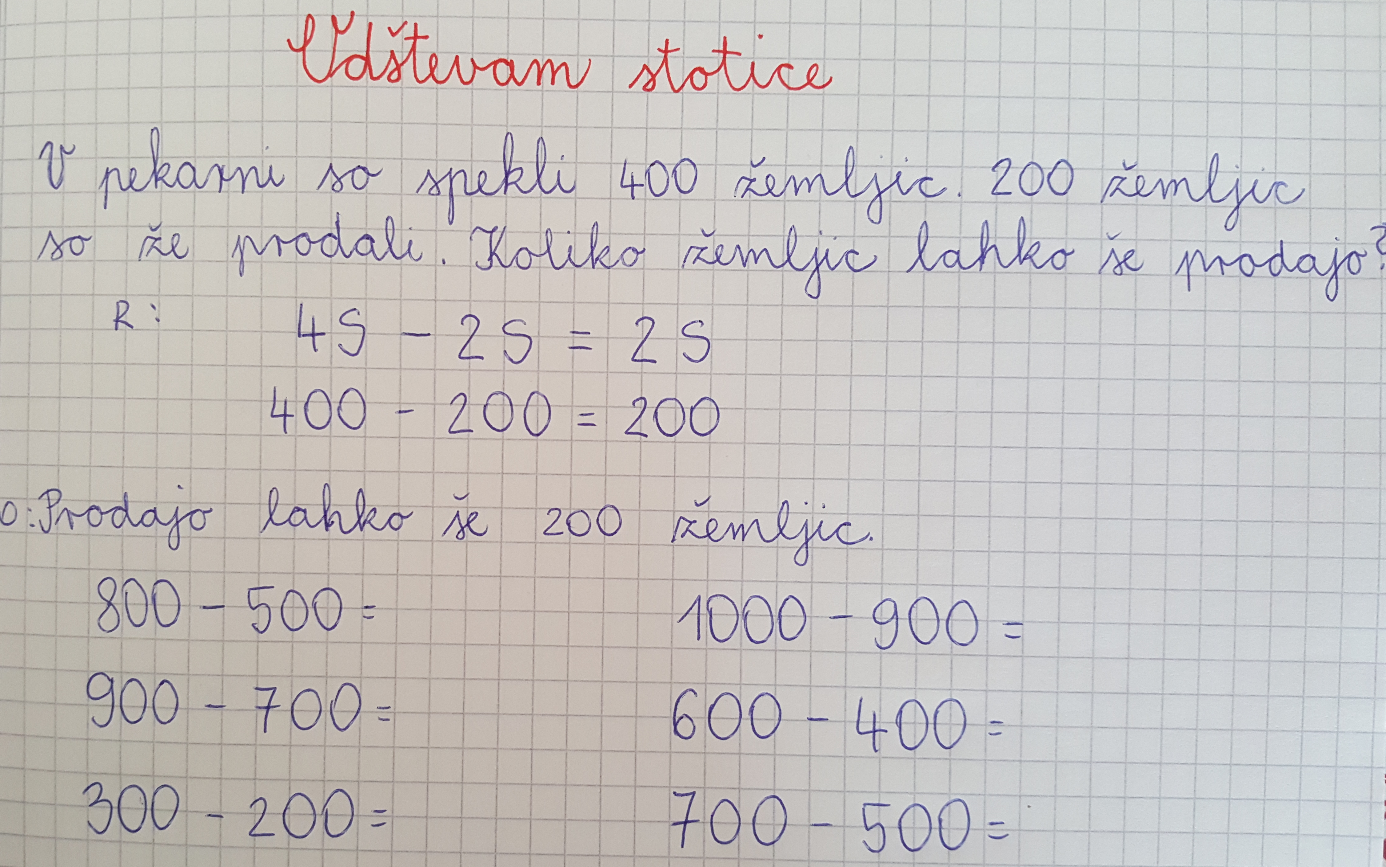 Odštevam stotice
V pekarni so spekli 400 žemljic. 200 žemljic
so že prodali. Koliko žemljic lahko še prodajo?
R: 4S - 2S = 2S
400 - 200 = 200
O: Prodajo lahko še 200 žemljic.
800 - 500 = 1000 - 900 =
900 - 700 = 600 - 400 =
300 - 200 = 700 - 500 =